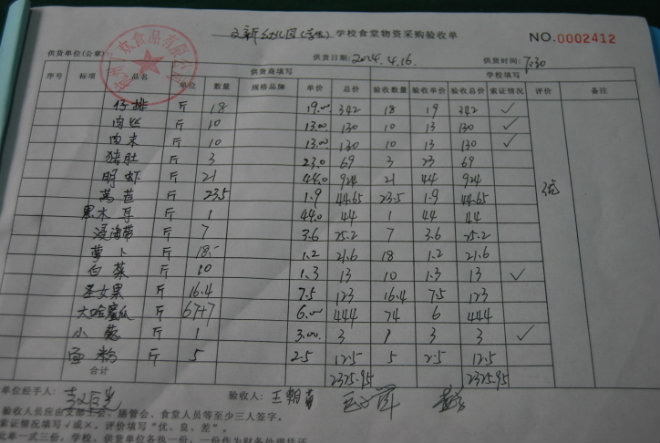 文新幼儿园(学生) 学校食堂物资采购验收单 NO.0002412
供货单位(公章): 供货日期: 2024.4.16. 供货时间: 7:30
供货商填写 学校填写
序号 标项 品名 单位 数量 规格品牌 单价 总价 验收数量 验收单价 验收总价 索证情况 评价 备注
仔排 斤 18 19.00 342 18 19 342 ✓
肉丝 斤 10 13.00 130 10 13 130 ✓
肉末 斤 10 13.00 130 10 13 130 ✓
猪肚 斤 3 23.0 69 3 23 69
明虾 斤 21 44.0 924 21 44 924
莴苣 斤 23.5 1.9 44.65 23.5 1.9 44.65 优
黑木耳 斤 1 44.0 44 1 44 44
海带 斤 7 3.6 25.2 7 3.6 25.2
萝卜 斤 18 1.2 21.6 18 1.2 21.6
白菜 斤 10 1.3 13 10 1.3 13 ✓
圣女果 斤 16.4 7.5 123 16.4 7.5 123
大哈蜜瓜 斤 67+7 6.00 444 74 6 444
小葱 斤 1 3.00 3 1 3 3 ✓
面粉 斤 5 2.5 12.5 5 2.5 12.5
合计 2325.95 2325.95
单位经手人: 验收人: 王朝
验收人员应由支部主会、膳管会、食堂人员等至少三人签字。
索证情况填写√或×。评价填写"优、良、差"。
此单一式三份，学校、供货单位各执一份，一份作为财务处理凭证